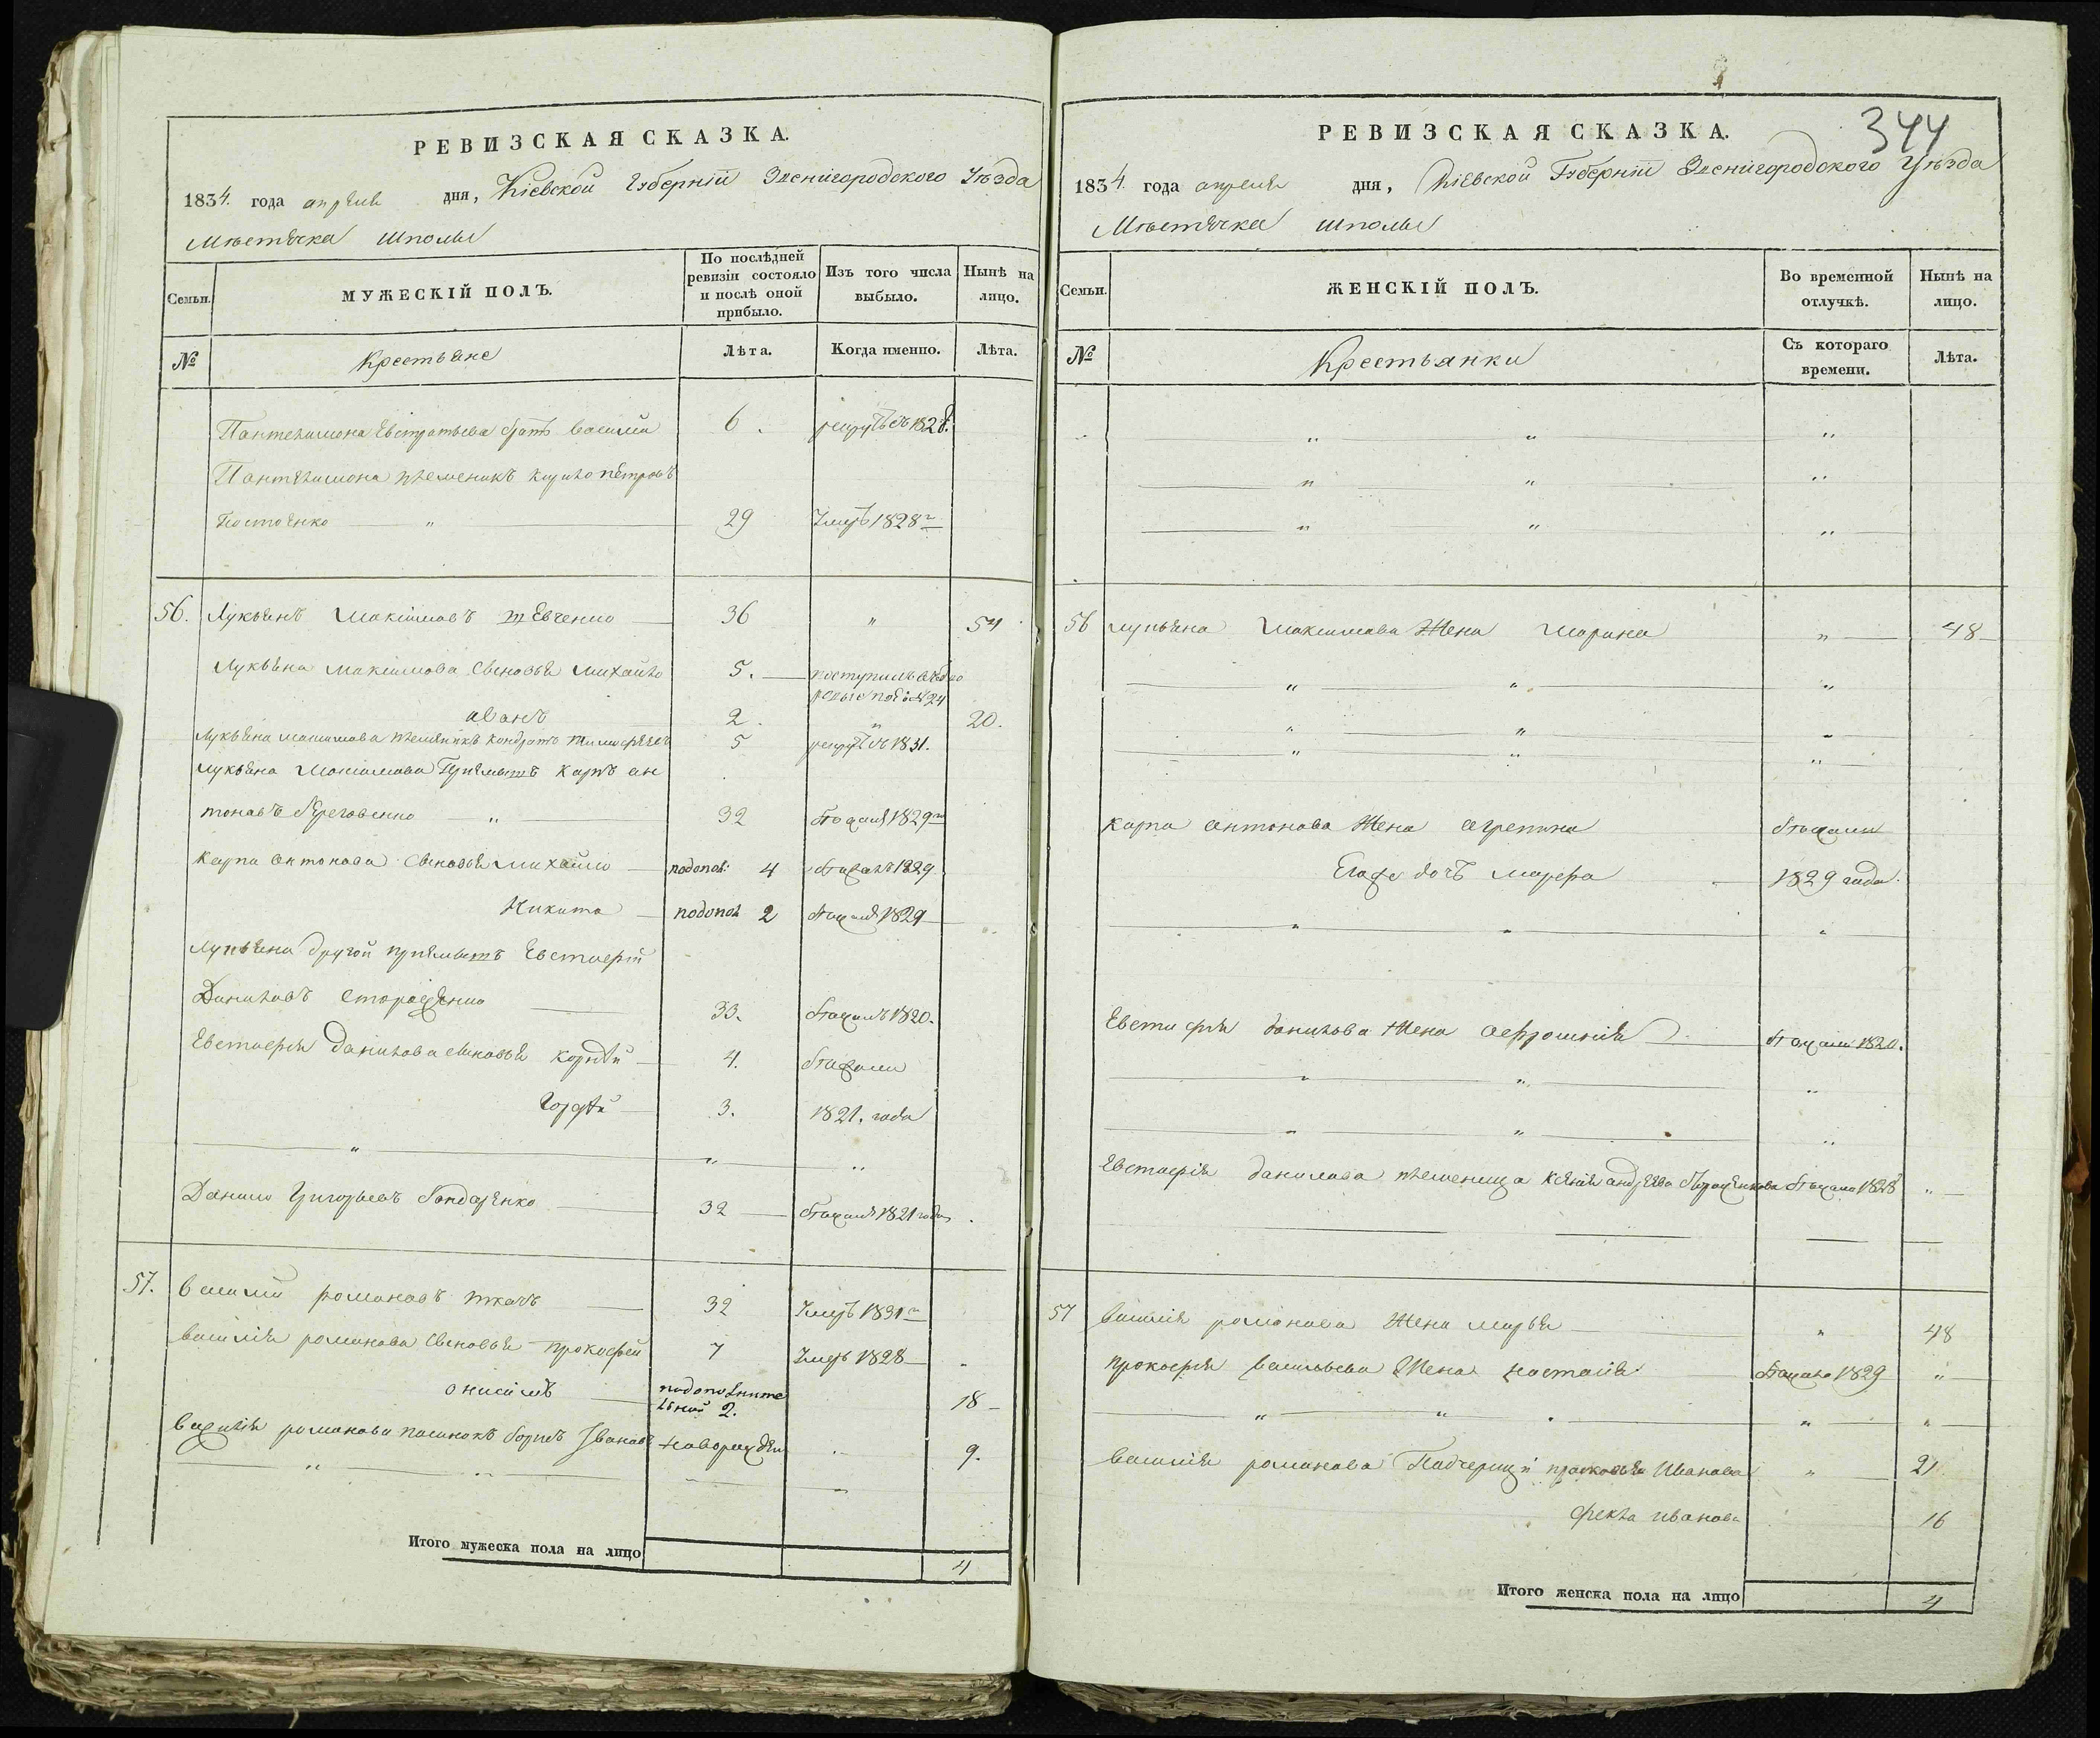 РЕВИЗСКАЯ СКАЗКА.
1834. года апреля дня, Кіевской Губерніи Звенигородского Уѣзда
Мѣстечка Шполы
Семьи.
МУЖЕСКІЙ ПОЛЪ.
По послѣдней ревизіи состояло и послѣ оной прибыло.
Изъ того числа выбыло.
Нынѣ на лицо.
№
Крестьяне
Лѣта.
Когда именно.
Лѣта.
Пантелимона Евстратьева братъ василій 6. рекрутъ съ 1828.
Пантелимона племеникъ петровъ
29 Умеръ 1828 г
56. Лукьянъ Максимовъ 36 " 54
Лукьяна максимова сыновья михайло 5. поступилъ
иванъ 2. " 20.
Лукьяна максимова племяникъ кондратъ тимофѣевъ 5 рекрутъ съ 1831.
лукьяна Максимова Пріемышъ Карпъ ан
тоновъ 32 бѣжалъ 1829
карпа антонова сыновья михайло подопол: 4 бѣжалъ 1829
Никита подопол 2 бѣжалъ 1829
лукьяна другой пріемышъ Евстафій
Даниловъ 33. бѣжалъ 1820.
Евстафія данилова сыновья корнѣй 4. бѣжали
Гордѣй 3. 1821. года
" " "
Данило Григорьевъ бондаренко 32 бѣжалъ 1821 года
57. василій романовъ ткачъ 32 Умеръ 1831 г
василія романова сыновья прокофей 7 Умеръ 1828
онисимъ подополните
льной 2. 18
василія романова пасинокъ борисъ Ивановъ новорожден " 9.
" "
Итого мужеска пола на лицо 4
344
РЕВИЗСКАЯ СКАЗКА.
1834. года апреля дня, Кіевской Губерніи Звенигородского Уѣзда
Мѣстечка Шполы
Семьи.
ЖЕНСКІЙ ПОЛЪ.
Во временной отлучкѣ.
Нынѣ на лицо.
№
Крестьянки
Съ котораго времени.
Лѣта.
" " "
" " "
" " "
56 лукьяна Максимова Жена Марина " 48
" " "
" " "
" " "
Карпа антонова Жена агрепина бѣжали
дочь марфа 1829 года.
" " "
Евстафія данилова Жена бѣжали 1820.
" " "
" " "
Евстафія данилова племеница андреева бѣжала 1828 "
57 василія романова Жена марья " 48
прокофія васильева Жена настасія бѣжала 1829 "
" " " "
василія романова Падчерицы прасковья Иванова " 21
фекла иванова 16
Итого женска пола на лицо 4